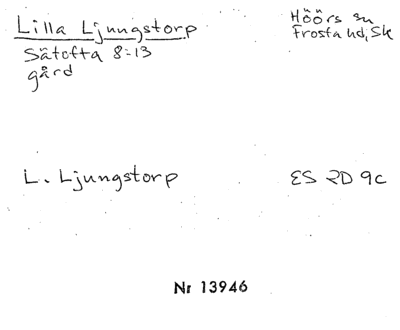 Lilla Ljungstorp
Sätofta 8:13
gård
Höörs sn
Frosta hd, Sk
L. Ljungstorp
ES 2D 9c
Nr 13946